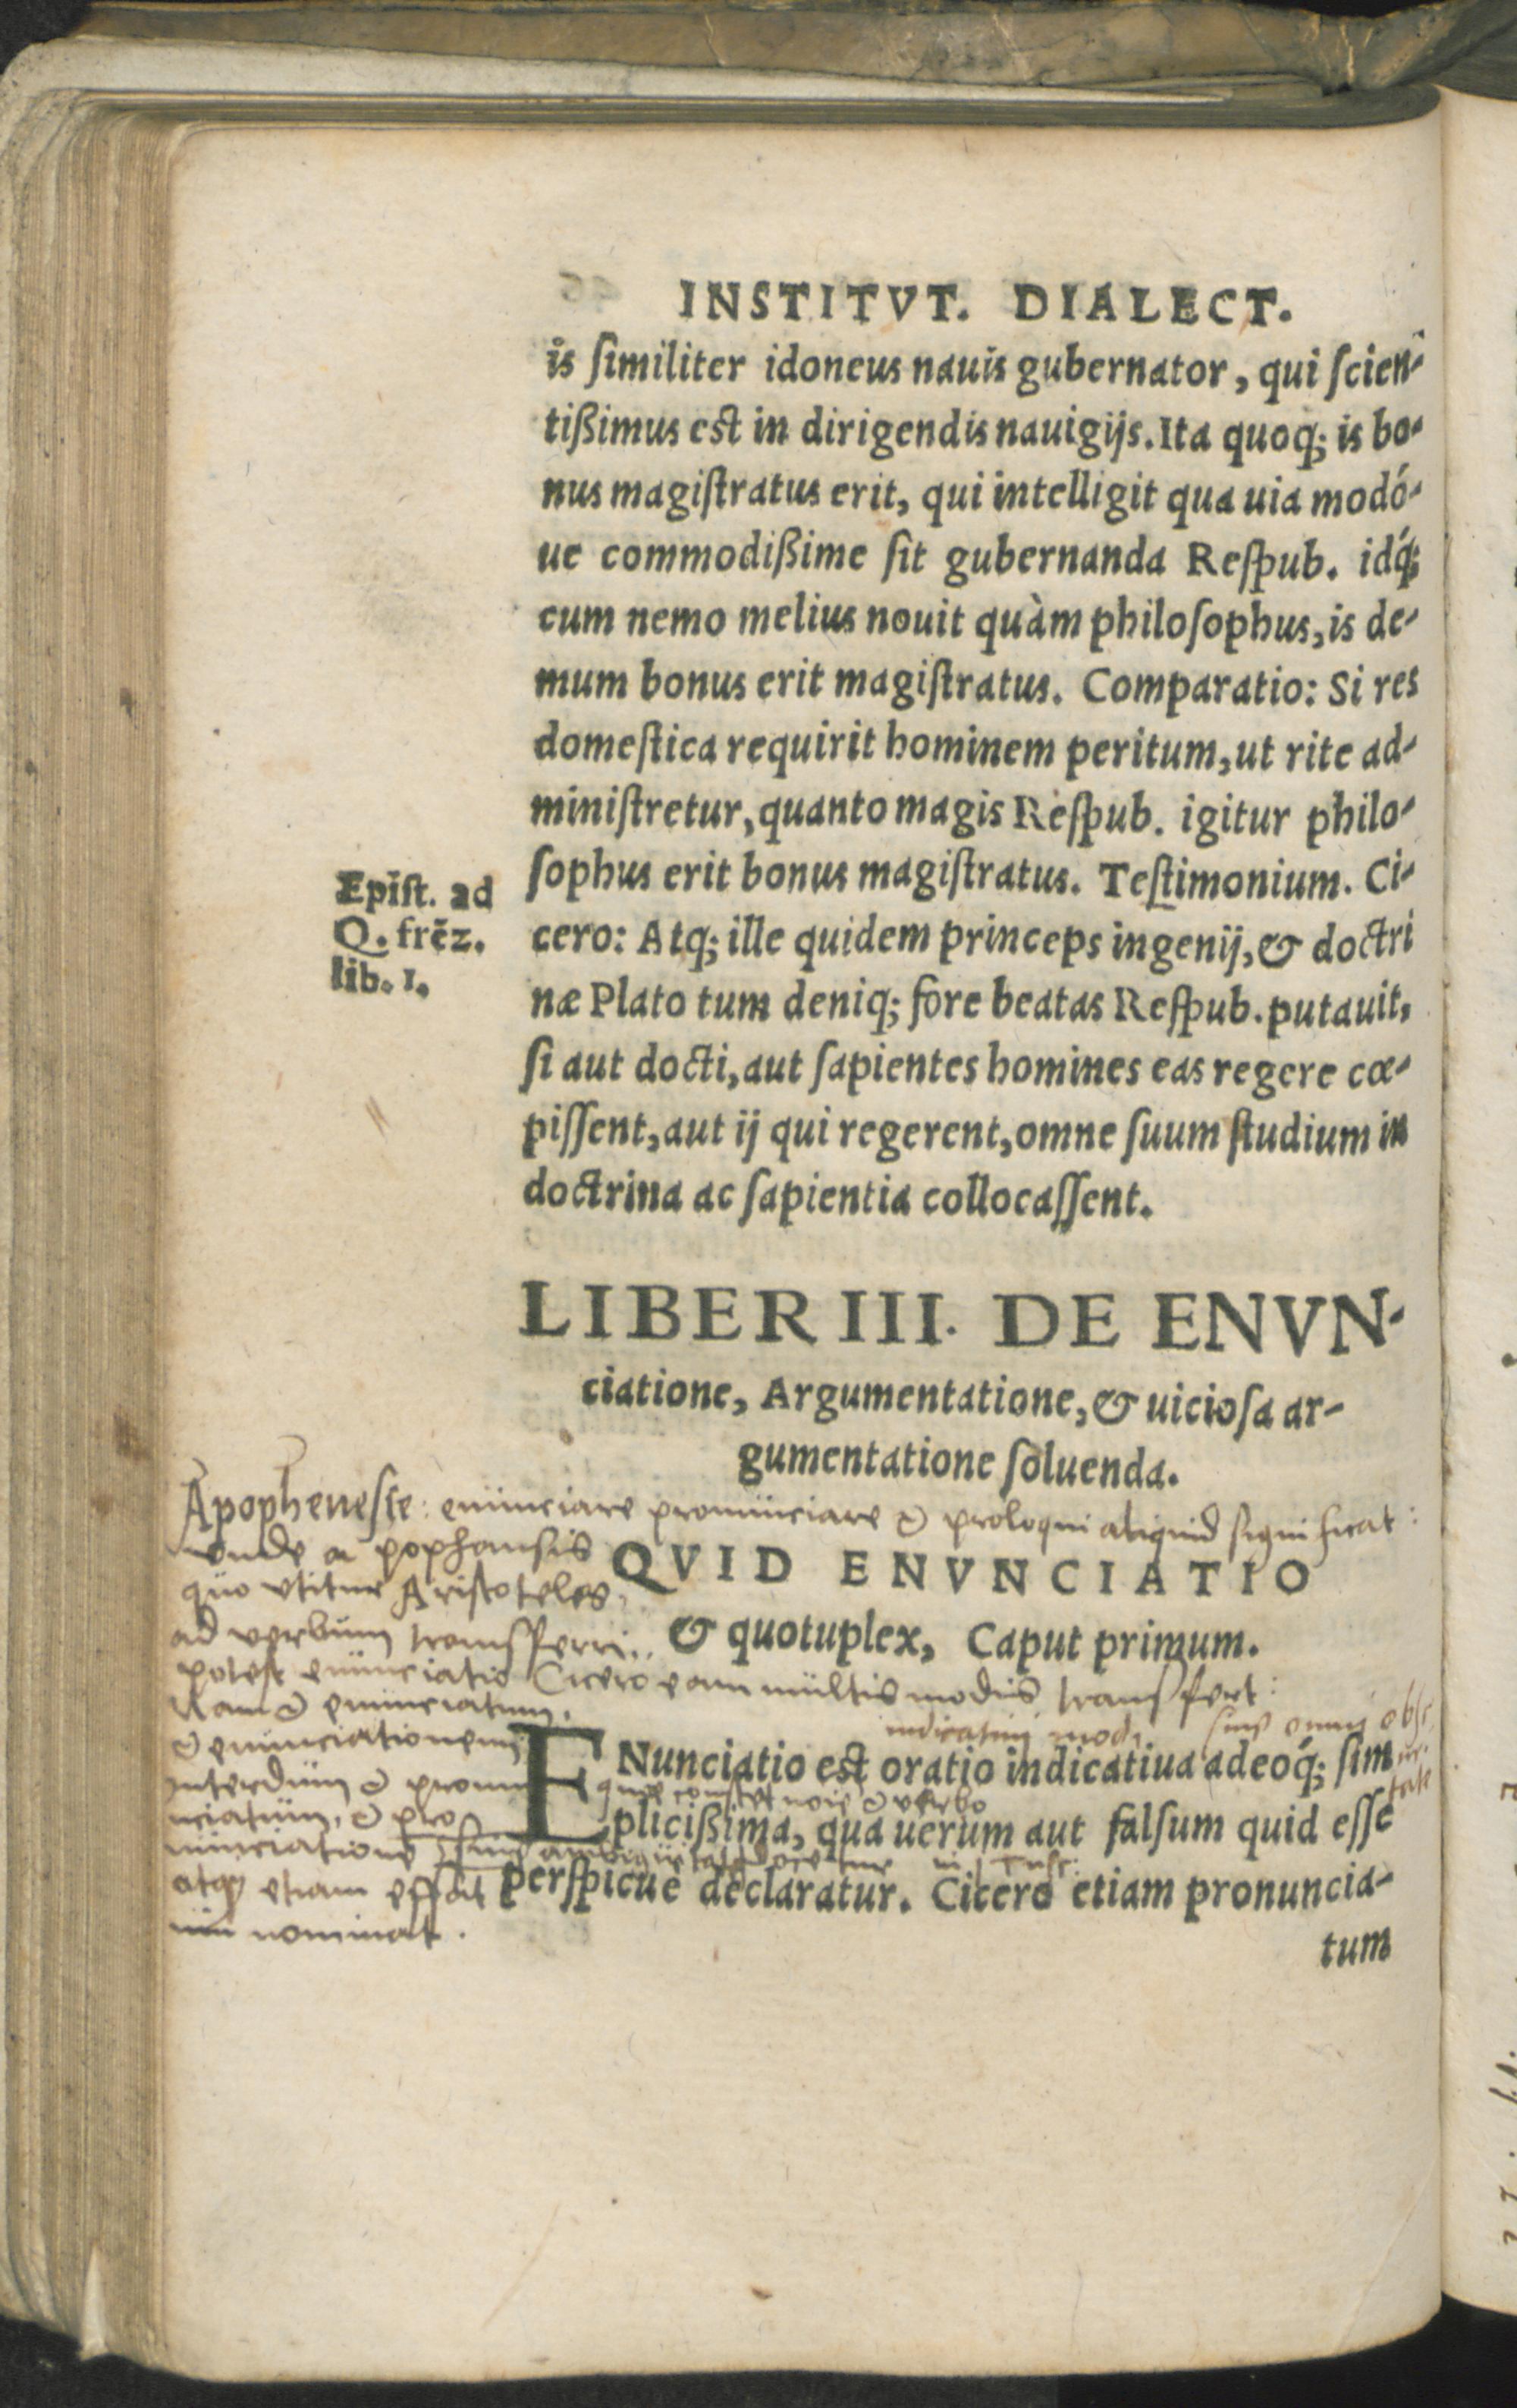 INSTITVT. DIALECT.
is ſimiliter idoneus nauis gubernator, qui ſcien-
tißimus est in dirigendis nauigijs. Ita quoq; is bo-
nus magiſtratus erit, qui intelligit qua uia modó-
ue commodißime ſit gubernanda Reſpub. idq́;
cum nemo melius nouit quàm philoſophus, is de-
mum bonus erit magiſtratus. Comparatio: Si res
domeſtica requirit hominem peritum, ut rite ad-
miniſtretur, quanto magis Reſpub. igitur philo-
ſophus erit bonus magiſtratus. Teſtimonium. Ci-
Epiſt. ad
Q. frēz.
lib. 1.
cero: Atq; ille quidem princeps ingenij, & doctri
næ Plato tum deniq; fore beatas Reſpub. putauit,
ſi aut docti, aut ſapientes homines eas regere cœ-
piſſent, aut ij qui regerent, omne ſuum ſtudium in
doctrina ac ſapientia collocaſſent.
LIBER III. DE ENVN-
ciatione, Argumentatione, & uicioſa ar-
gumentatione ſoluenda.
Apopheneſte: enunciare pronunciare & proloqui aliquid ſignificat:
unde a pophansis
quo utitur Ariſtoteles,
ad verbum transferri
potest enunciatio Cicero eam multis modis transfert:
Nam & enunciatum,
& enunciationem
interdum & pronun
ciatum, & pro
nunciatione
atq; etiam effat
um nominat.
QVID ENVNCIATIO
& quotuplex, Caput primum.
indicatiui modi ſine omni obſc
ENunciatio est oratio indicatiua adeoq́; ſim
quæ constet noīe & verbo
plicißima, qua uerum aut falſum quid eſſe
perſpicue declaratur. Cicero etiam pronuncia-
tum